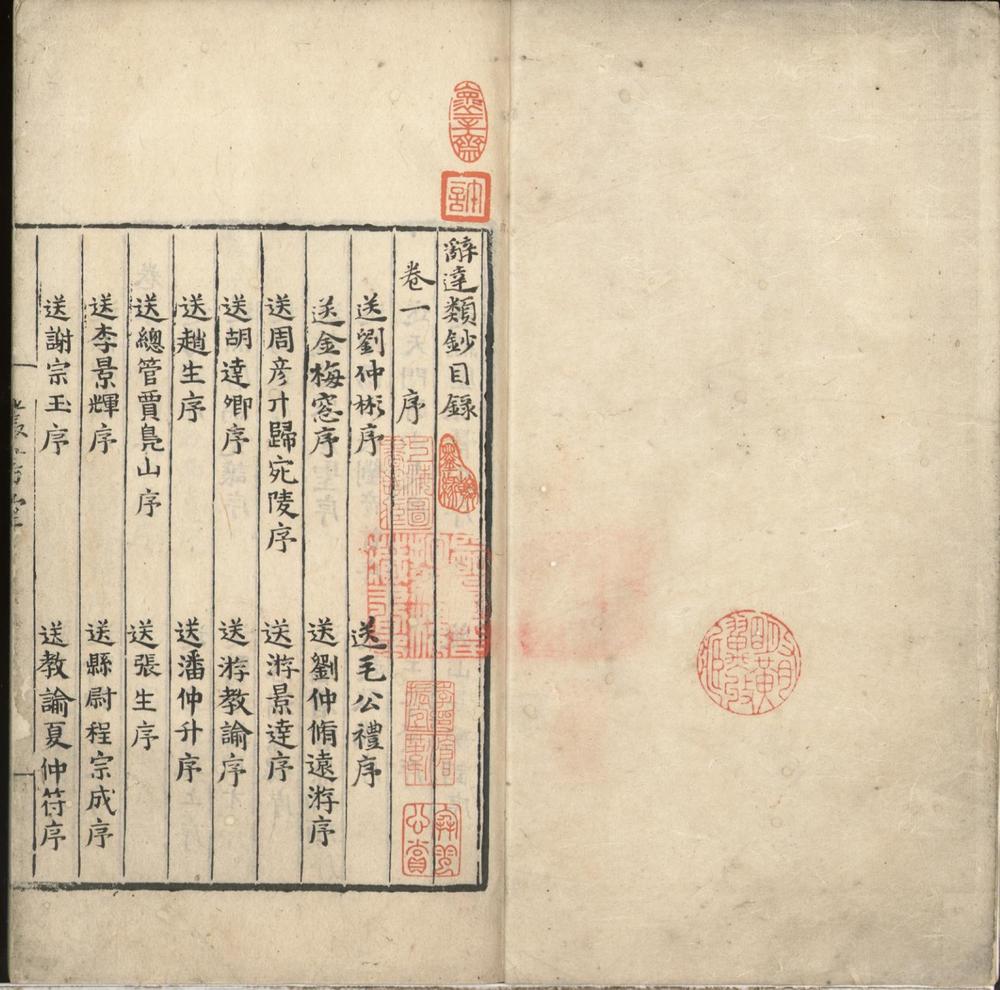 辭達類鈔目錄
卷一 序
送劉仲彬序 送毛公禮序
送金梅窓序 送劉仲脩遠游序
送周彦才歸宛陵序 送游景達序
送胡達卿序 送游教諭序
送趙生序 送潘仲升序
送總管賈鳧山序 送張生序
送李景輝序 送縣尉程宗成序
送謝宗玉序 送教諭夏仲符序